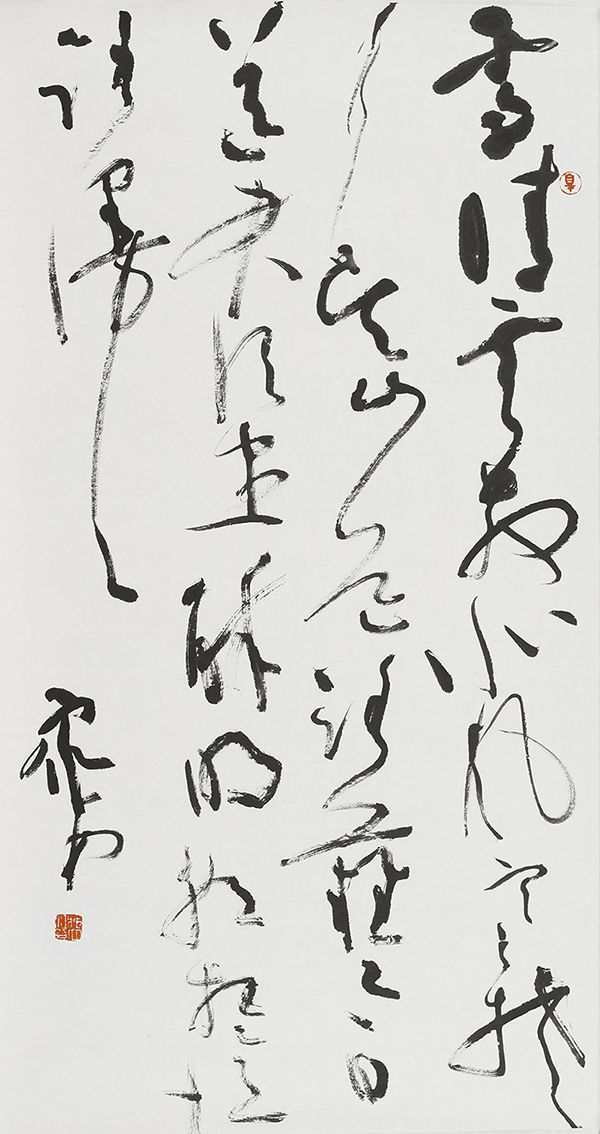 雪晴云散北風寒楚
水吴山道路難今日
送君須盡醉明朝相憶
路漫漫